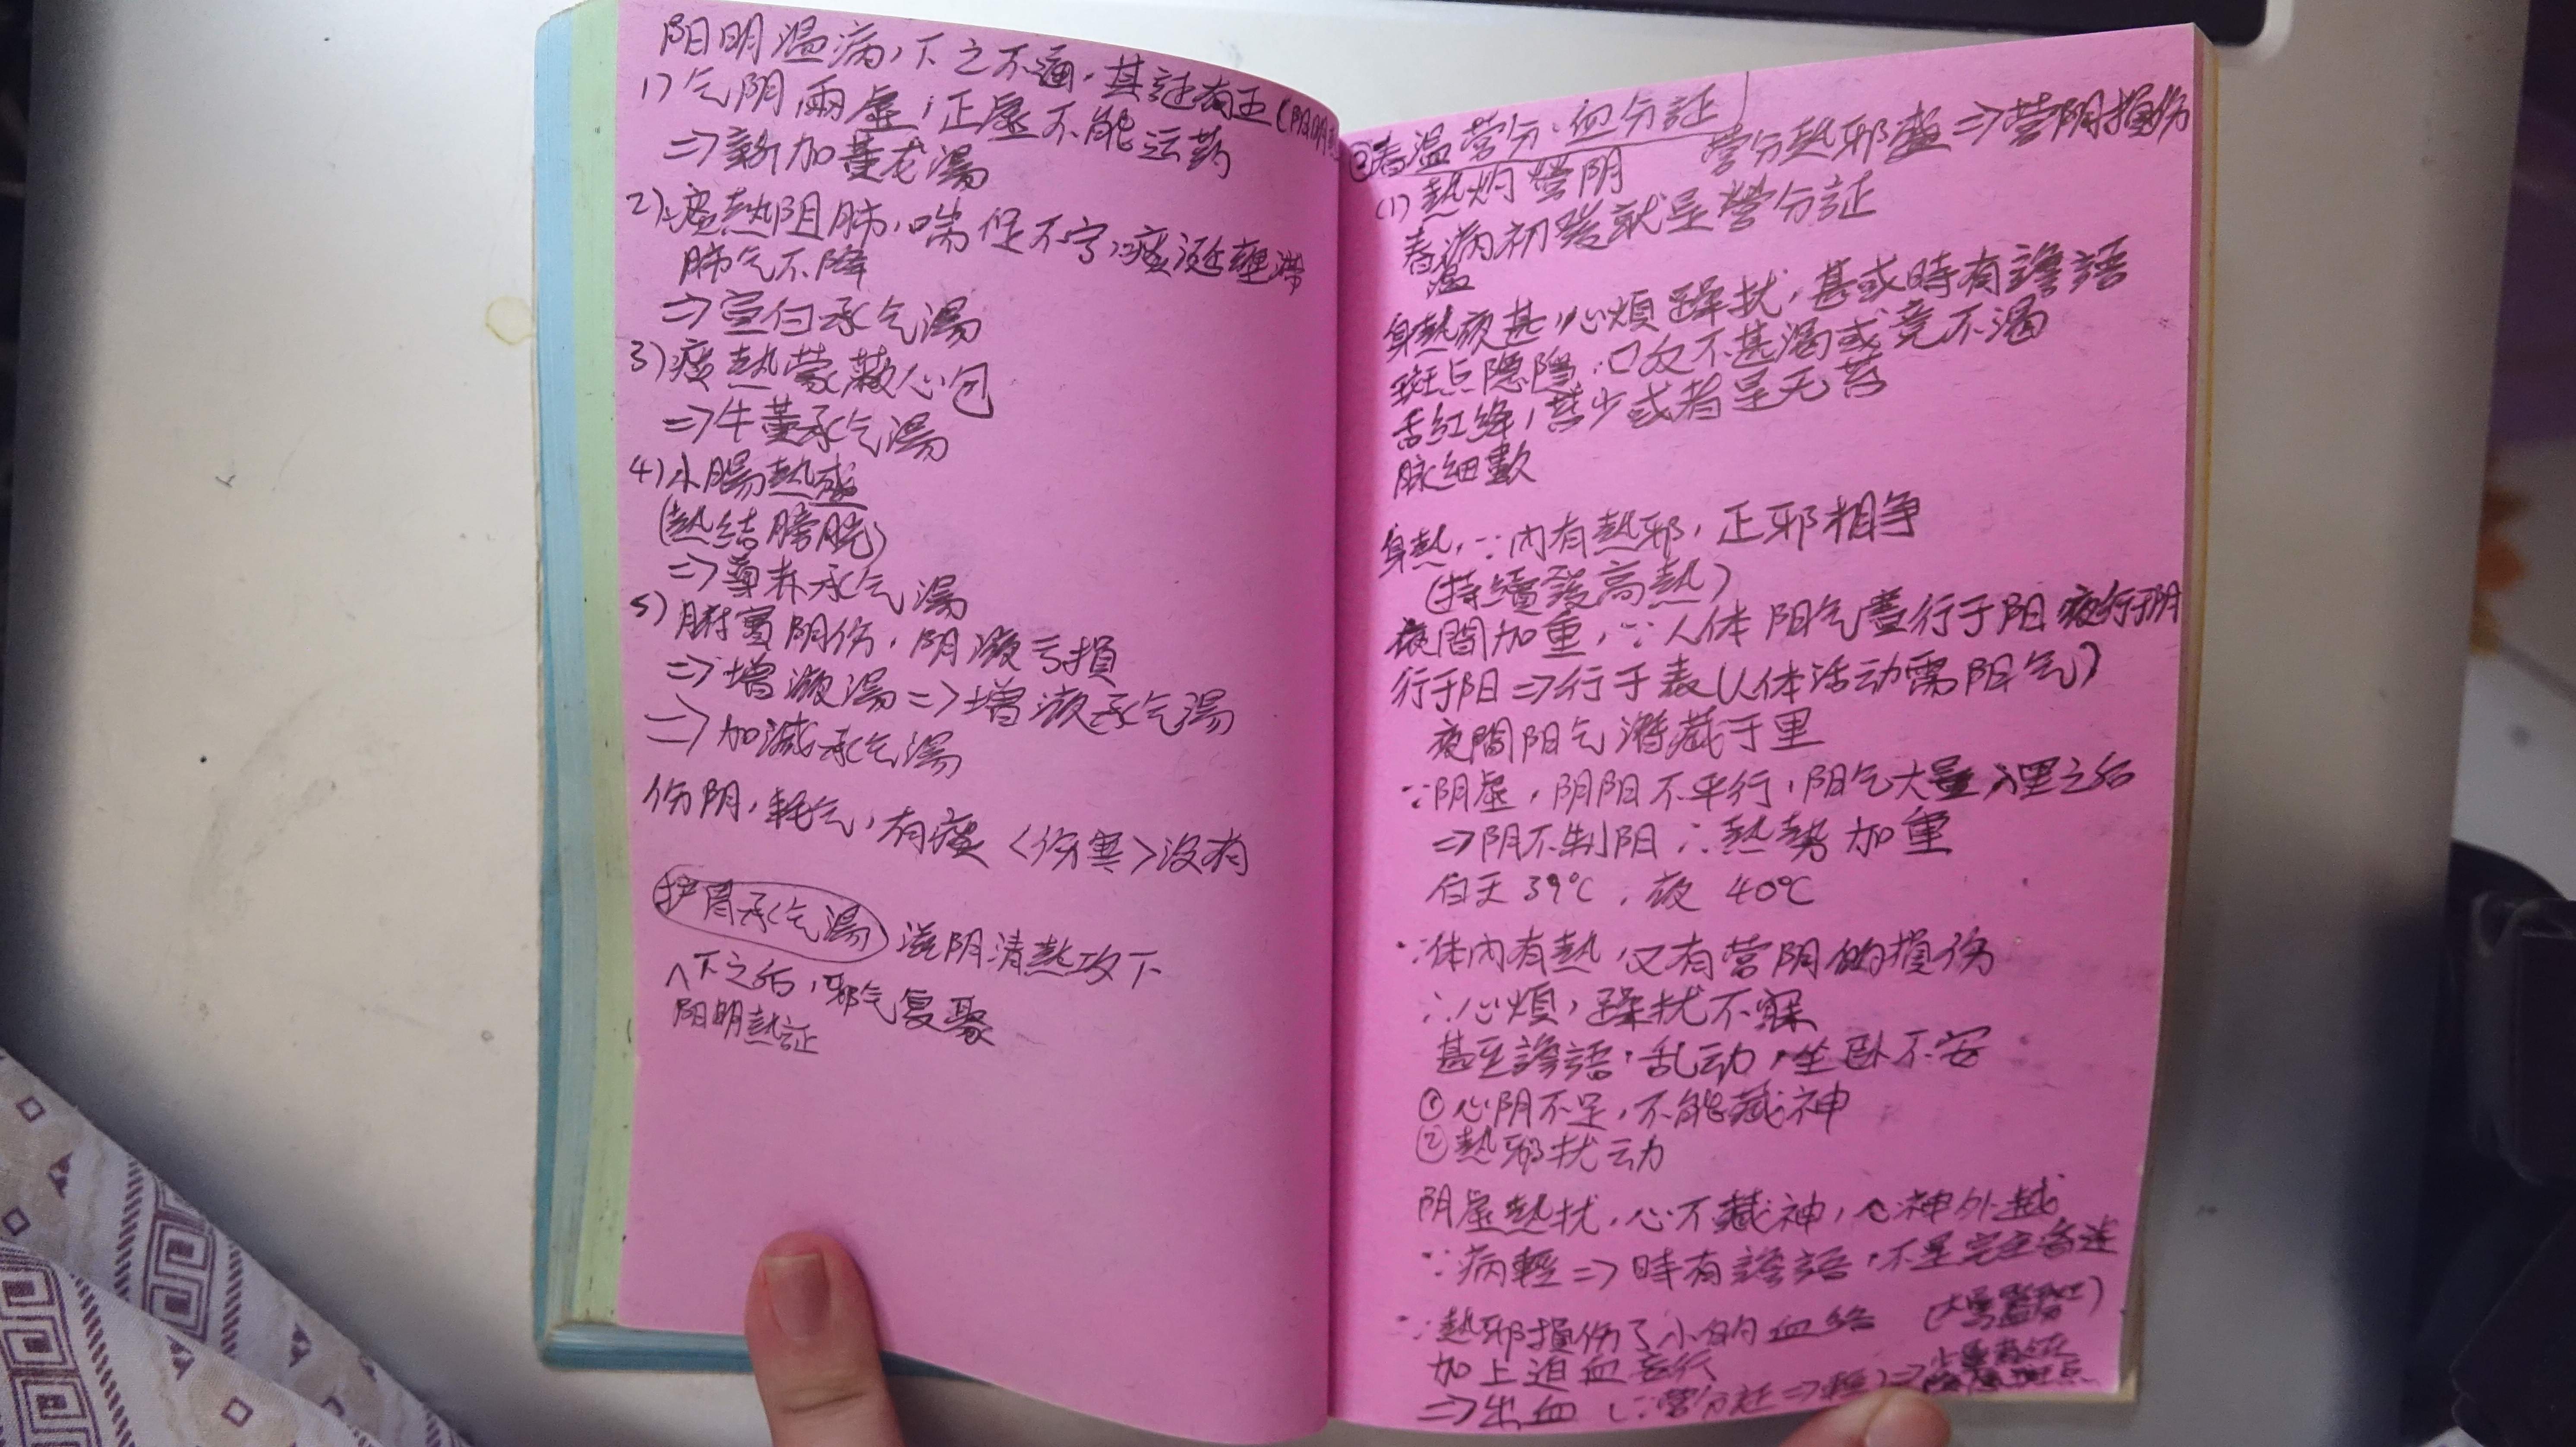 阳明温病,下之不通,其証有五(阳明
1)气阴兩虚,正虚不能运药
⇒新加黃龙湯
2)痰熱阻肺,喘促不宁,痰涎壅滞
肺气不降
⇒宣白承气湯
3)痰熱蒙蔽心包
⇒牛黃承气湯
4)小腸熱盛
(熱結膀胱)
⇒導赤承气湯
5)腑實阴伤,阴液亏損
⇒增液湯⇒增液承气湯
⇒加減承气湯
伤阴,耗气,有痰〈伤寒〉沒有
护胃承气湯 滋阴清熱攻下
^下之后,邪气复聚
阳明熱証
②春温营分.血分証
(1)熱灼營阴 营分熱邪盛⇒营阴損伤
春温病初發就是營分証
身熱夜甚,心煩躁扰,甚或時有譫語
斑点隐隐,口反不甚渴或竟不渴
舌紅絳,苔少或者是无苔
脉細數
身熱,∵内有熱邪,正邪相争
(持續發高熱)
夜間加重,∵人体阳气晝行于阳夜行于阴
行于阳⇒行于表(人体活动需阳气)
夜間阳气潛藏于里
∵阴虚,阴阳不平行,阳气大量入里之后
⇒阴不制阳∴熱勢加重
白天39°C,夜40°C
∵体内有熱,又有营阴的損伤
∴心煩,躁扰不寐
甚至譫語,乱动,坐卧不安
①心阴不足,不能藏神
②熱邪扰动
阴虚熱扰,心不藏神,心神外越
∵病輕⇒時有譫語,不是完全昏迷
∵熱邪損伤了小的血络
加上迫血妄行
⇒出血(∵营分証⇒輕)⇒